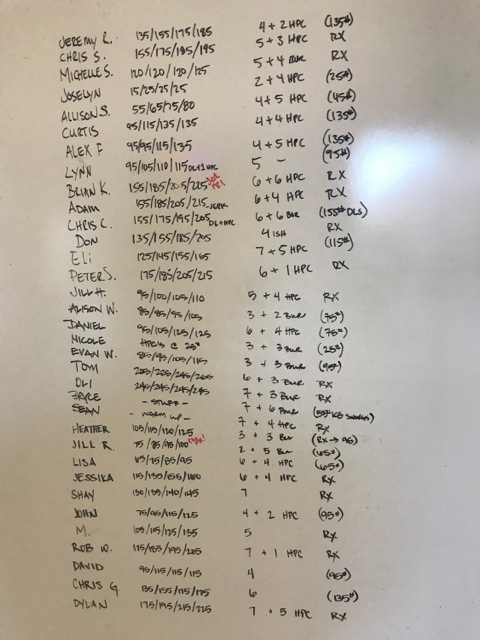 JEREMY R. 135/155/175/185 4+2 HPC (135#)
CHRIS S. 155/175/185/195 5+3 HPC RX
MICHELLE S. 120/120/120/125 5+4 BUR RX
JOSELYN 15/25/25/25 2+4 HPC (25#)
ALLISON S. 55/65/75/80 4+5 HPC (45#)
CURTIS 95/115/135/135 4+4 HPC (135#)
ALEX F 95/95/115/135 4+5 HPC (135#)
LYNN 95/105/110/115 5 - (95#)
BRIAN K. 155/185/205/225 6+6 HPC RX
ADAM 155/185/205/215 JERK 6+4 HPC RX
CHRIS C. 155/175/195/205 DL+HPC 6+6 BUR (155# DLS)
DON 135/155/185/205 4 ISH RX
ELI 125/145/155/165 7+5 HPC (115#)
PETER S. 175/185/205/215 6+1 HPC RX
JILL H. 95/100/105/110 5+4 HPC RX
ALISON W. 85/85/95/105 3+2 BUR (75#)
DANIEL 95/105/125/125 6+4 HPC (75#)
NICOLE HPC'S @ 25# 3+3 BUR (25#)
EVAN W. 85/95/105/115 3+3 BUR (95#)
TOM 205/225/245/265 6+3 BUR RX
OLI 245/245/245/245 7+3 BUR RX
BRYCE - STUFF - 7+6 BUR
SEAN - WARM UP - 7+4 HPC RX
HEATHER 105/115/120/125 3+3 BUR (RX → 95)
JILL R. 75/85/95/100 2+5 BUR (65#)
LISA 65/75/85/95 6+4 HPC (65#)
JESSIKA 115/135/155/160 6+4 HPC RX
SHAY 130/135/140/145 7 RX
JOHN 75/95/115/125 4+2 HPC (95#)
M. 105/115/125/135 5 RX
ROB W. 115/185/195/205 7+1 HPC RX
DAVID 95/115/115/115 4 (95#)
CHRIS G 135/155/175/175 6 (135#)
DYLAN 175/195/215/225 7+5 HPC RX